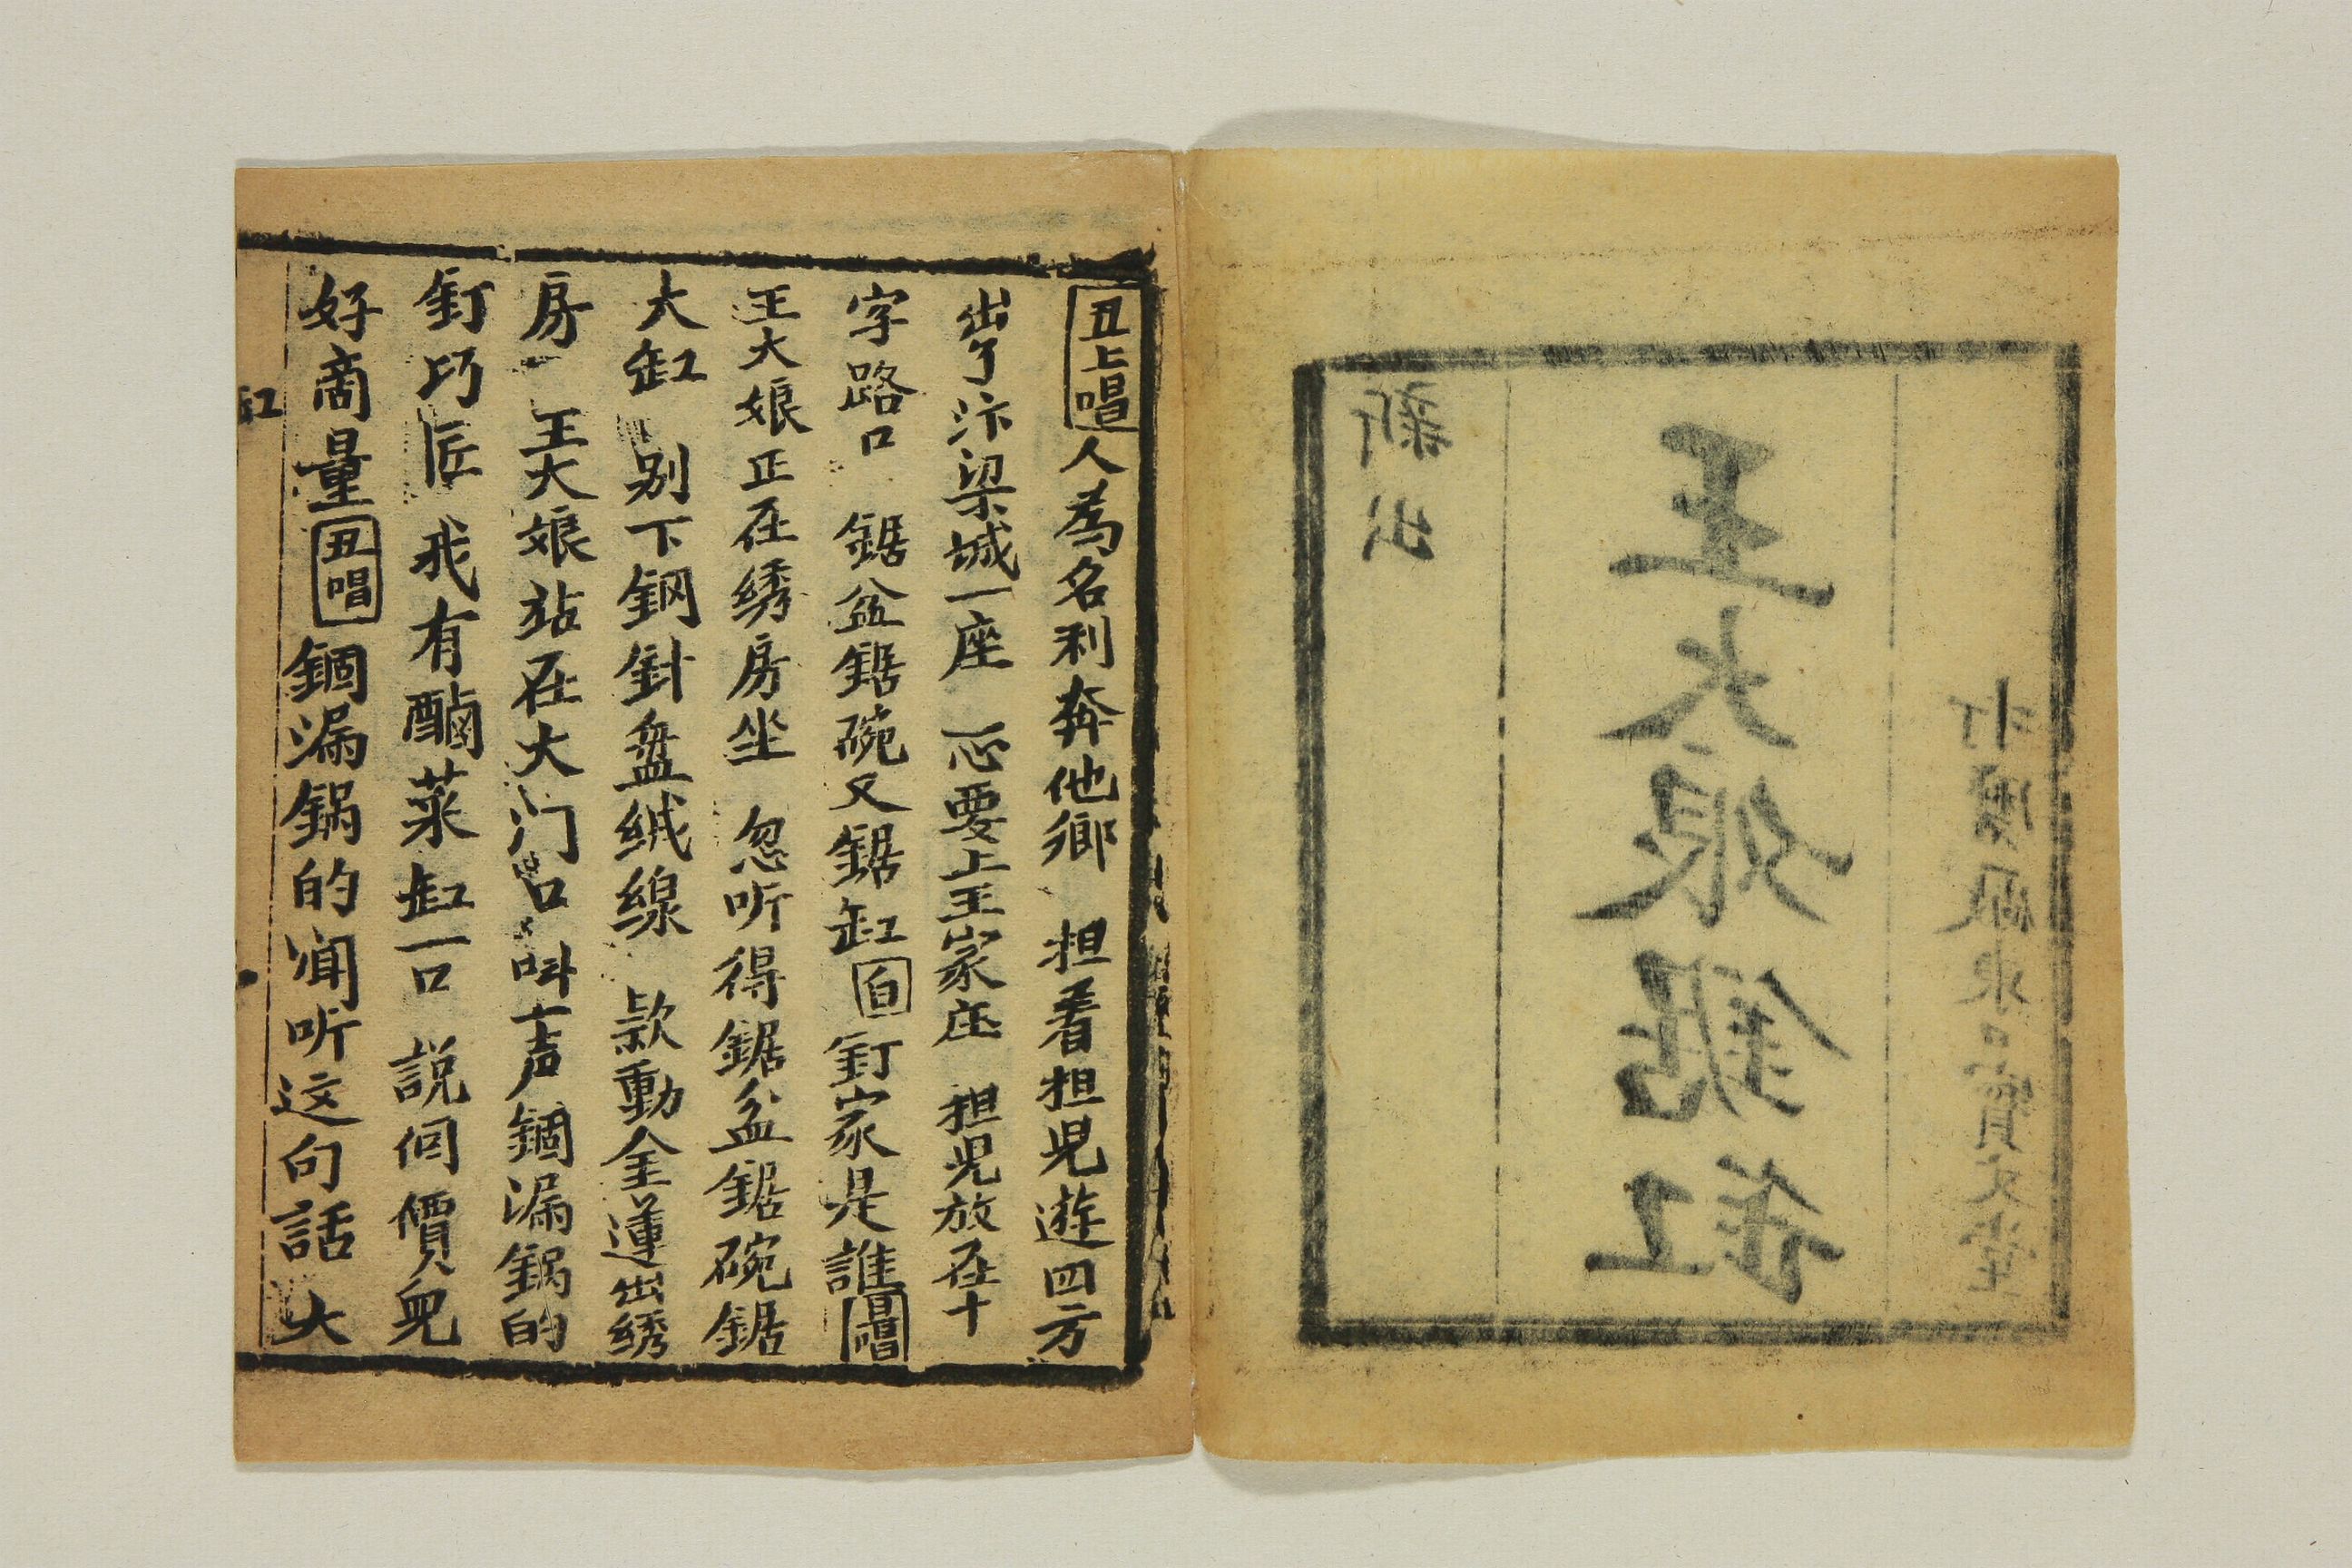 新出
王大娘鋸缸
打磨厰東口寶文堂
丑上唱人為名利奔他鄉 担着担兒遊四方
出了汴梁城一座 一心要上王家庄 担兒放在十
字路口 鋸盆鋸碗又鋸缸白釘家是誰旦唱
王大娘正在綉房坐 忽听得鋸盆鋸碗鋸
大缸 别下鋼針盤絨線 款動金蓮出綉
房 王大娘站在大门口 叫一声錮漏鍋的
釘巧匠 我有醎菜缸一口 説個價兒
好商量丑唱錮漏鍋的闻听这句話 大
缸